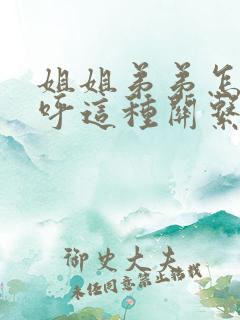 姐姐弟弟怎
呼這種關繫
御史大夫
未经同意禁止转载